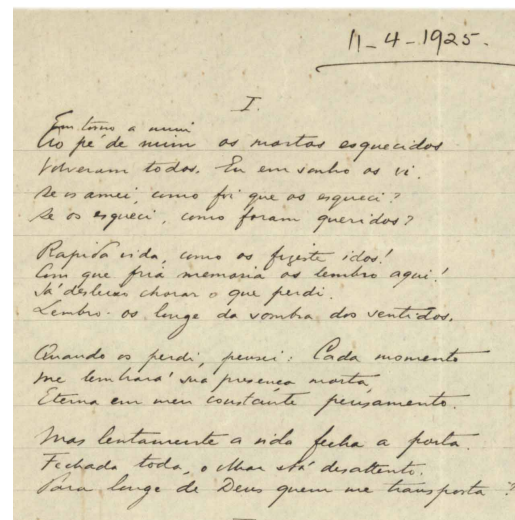 11-4-1925.
I.
Em torno a mim
Ao pé de mim os mortos esquecidos
Volveram todos. Eu em sonho os vi.
Se os amei, como foi que os esqueci?
Se os esqueci, como foram queridos?
Rapida vida, como os fizeste idos!
Com que fria memoria os lembro aqui!
Já desleixo chorar o que perdi.
Lembro-os longe da sombra dos sentidos.
Quando os perdi, pensei: Cada momento
Me lembrará sua presença morta,
Eterna em meu constante pensamento.
Mas lentamente a vida fecha a porta.
Fechada toda, o olhar stá desattento.
Para longe de Deus quem me transporta?